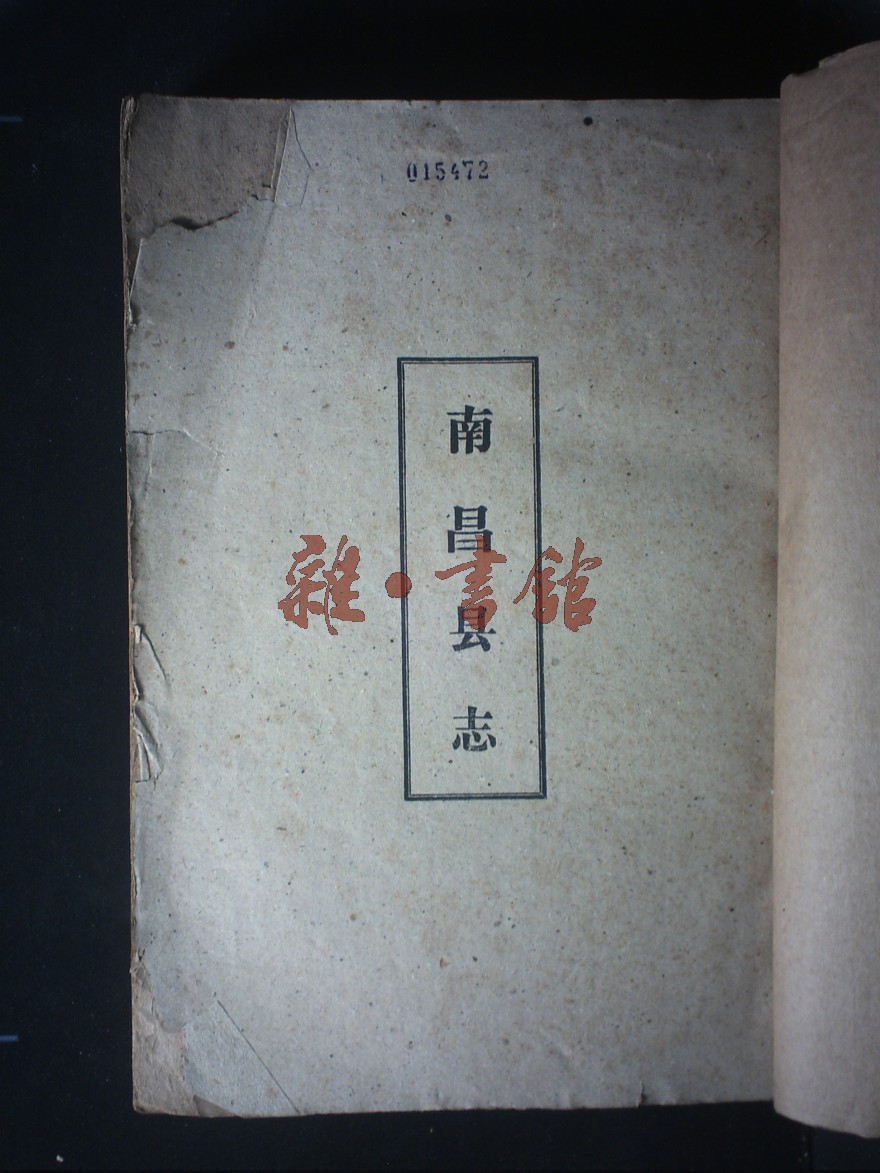 015472
南昌县志
雜·書館